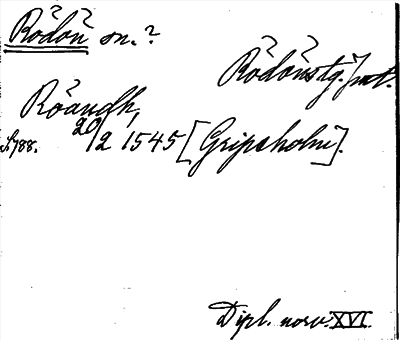 Rödön sn.?
Rödöns tg. Jmt.
Röaudh,
S. 788. 20/2 1545 [Gripsholm].
Dipl. norv. XVI.